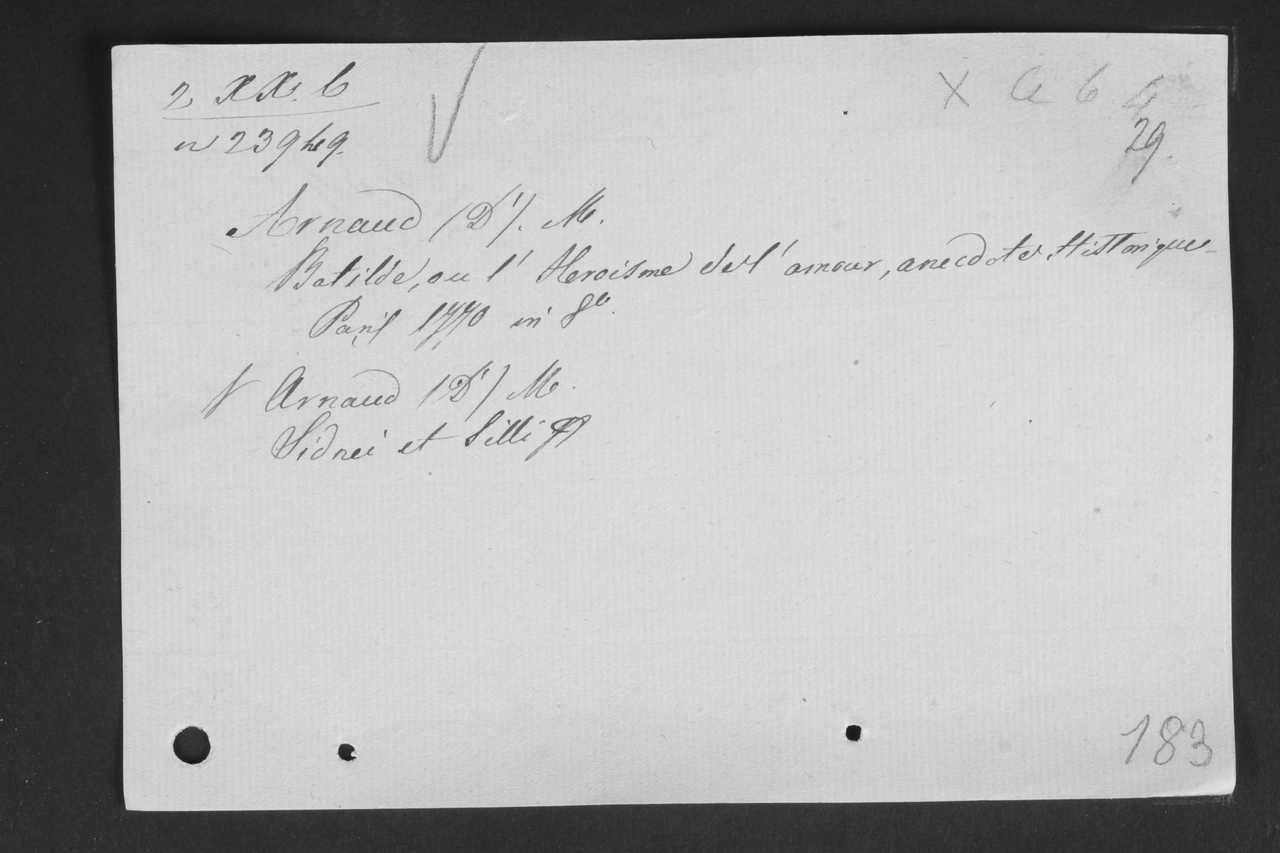 2 XX. C
X a 6 4
n 239 h 9.
29.
Arnaud (D'). M.
Batilde, ou l' Heroisme de l' amour, anecdote Historique
Paris 1770 in 8°.
Arnaud (D') M.
Sidnei et Silli
183